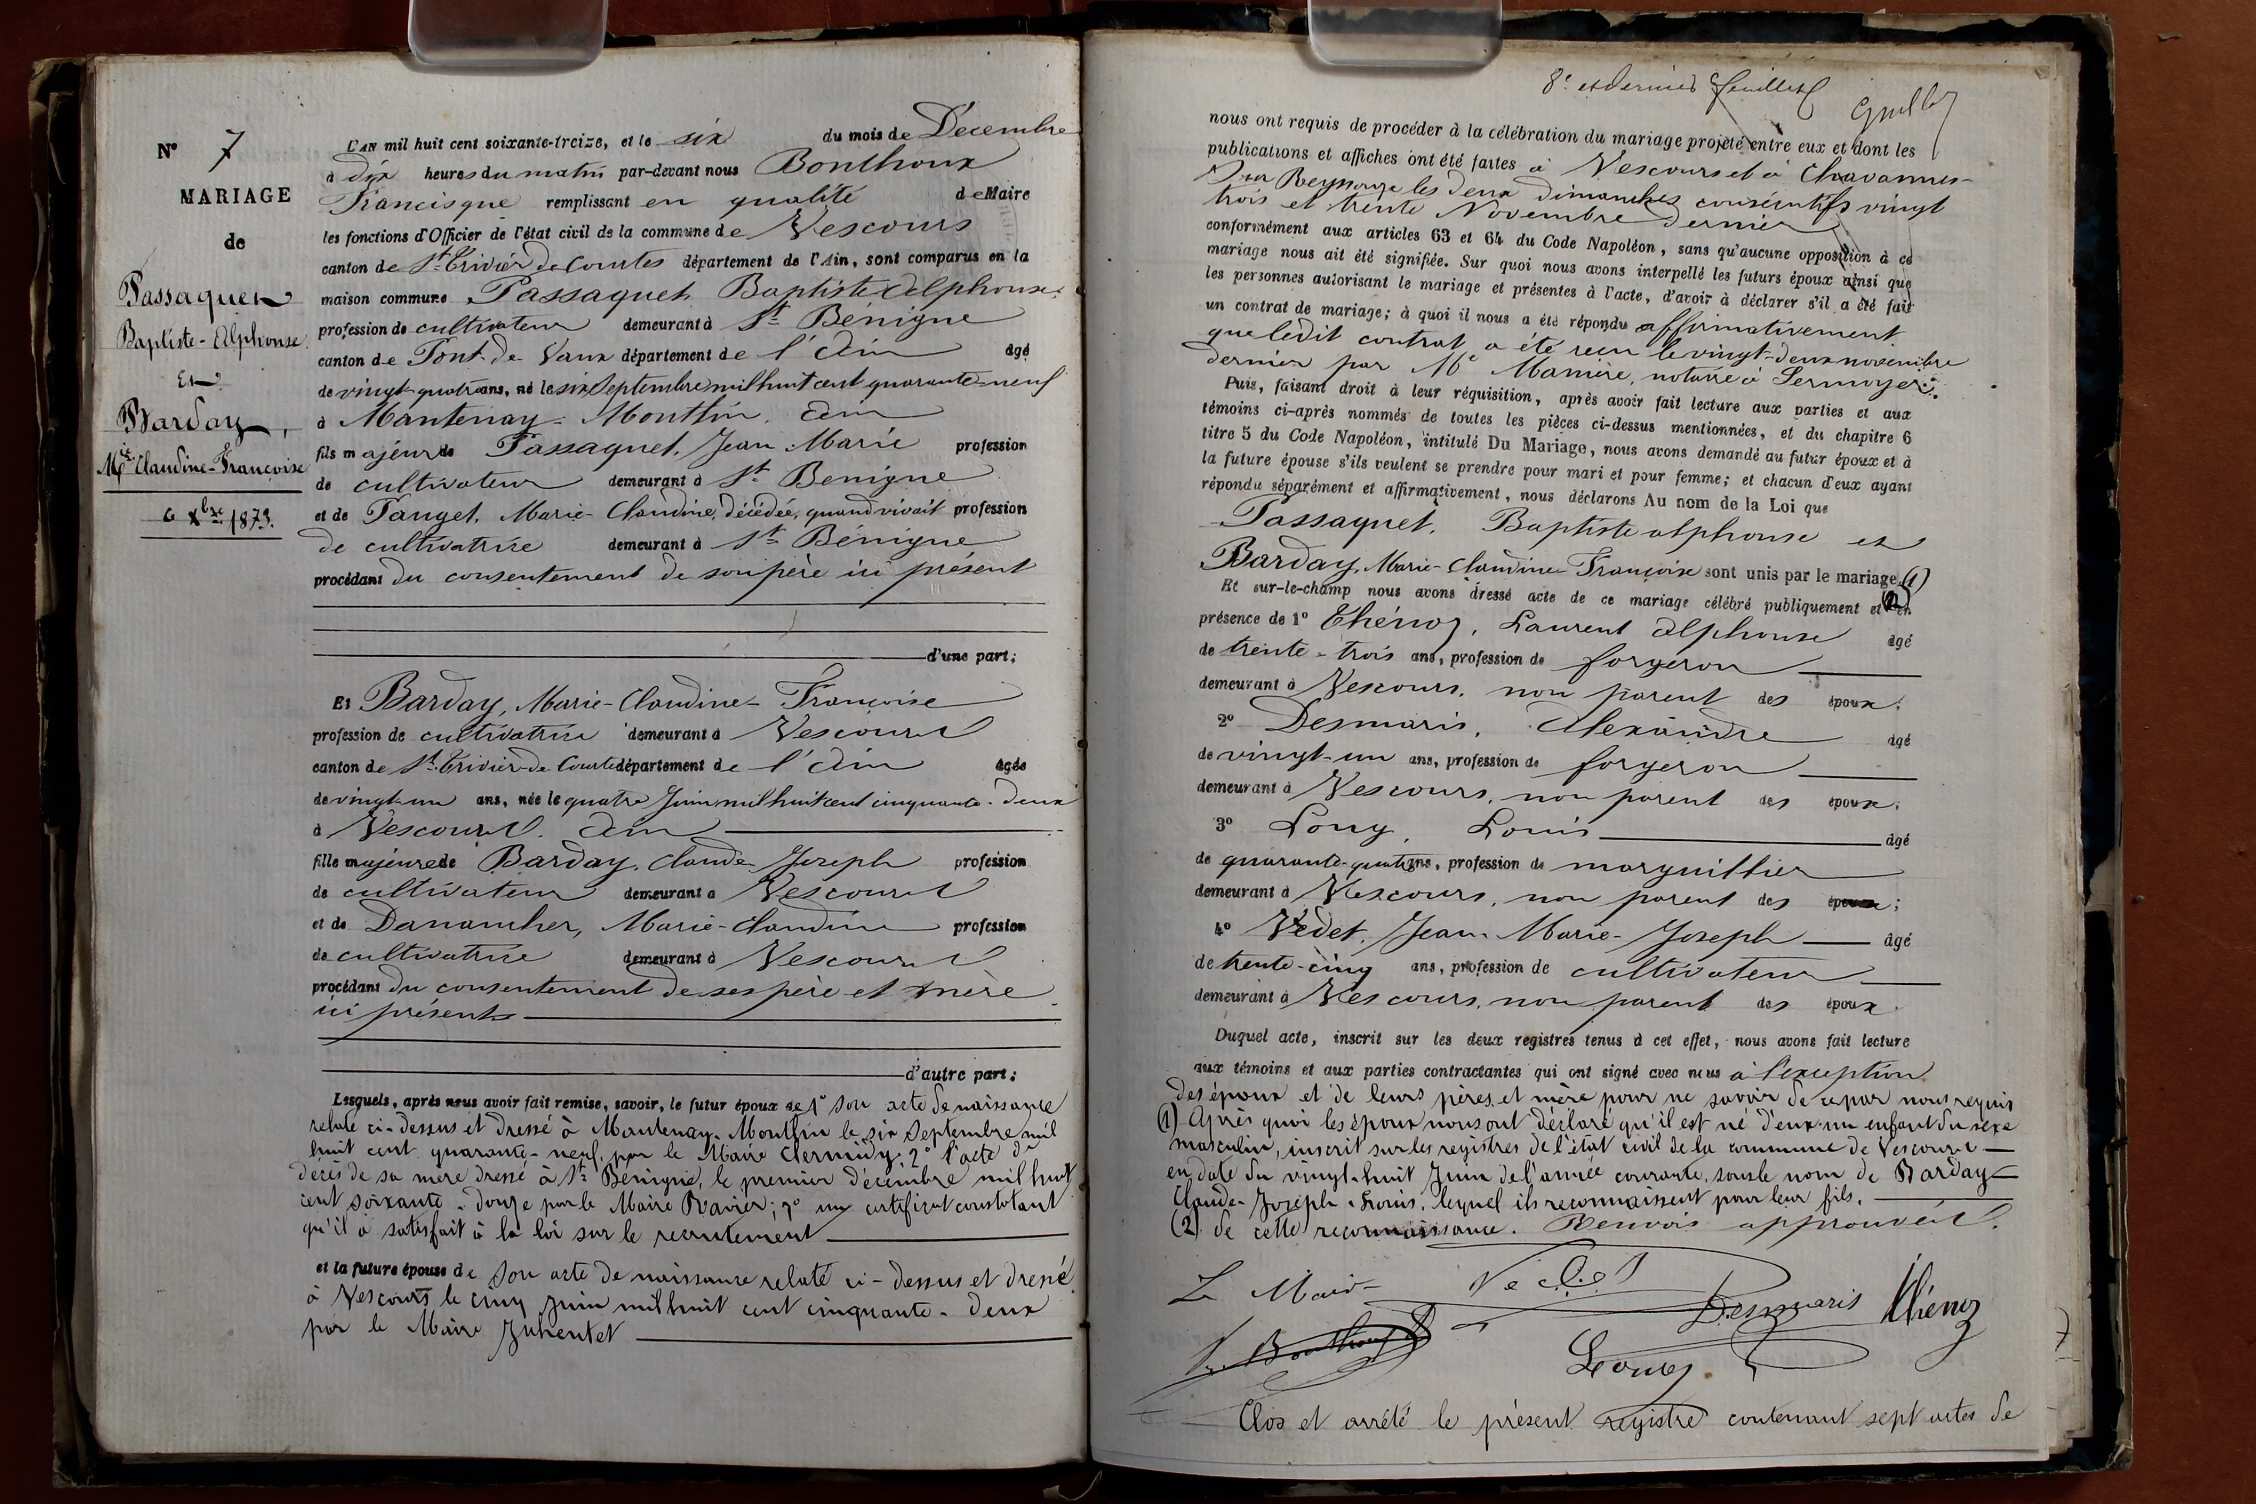 N° 7
MARIAGE
de
Passaquet
Baptiste-Alphonse
Et
Barday,
Mie Claudine-Françoise
6 Xbre 1873.
L'AN mil huit cent soixante-treize, et le six du mois de Décembre
à dix heures du matin par-devant nous Bonthoux
Francisque remplissant en qualité de Maire
les fonctions d'Officier de l'état civil de la commune de Vescours
canton de St Trivier de Courtes département de l'Ain, sont comparus en la
maison commune Passaquet Baptiste Alphonse,
profession de cultivateur demeurant à St Bénigne
canton de Pont-de-Vaux département de l'Ain âgé
de vingt-quatre ans, né le six Septembre mil huit cent quarante-neuf
à Mantenay-Montlin, Ain
fils majeur de Passaquet, Jean-Marie profession
de cultivateur demeurant à St Benigne
et de Panget, Marie-Claudine, décédée, quand vivait profession
de cultivatrice demeurant à St Bénigne
procédant du consentement de son père ici présent
d'une part;
Et Barday, Marie-Claudine-Françoise
profession de cultivatrice demeurant à Vescours
canton de St Trivier-de Courtes département de l'Ain âgée
de vingt-un ans, née le quatre Juin mil huit cent cinquante-deux
à Vescours. Ain
fille majeure de Barday, Claude-Joseph profession
de cultivateur demeurant à Vescours
et de Danancher, Marie-Claudine profession
de cultivatrice demeurant à Vescours
procédant du consentement de ses père et mère
ici présents
d'autre part:
Lesquels, après nous avoir fait remise, savoir, le futur époux de 1° son acte de naissance
relaté ci-dessus et dressé à Mantenay-Montlin le six Septembre mil
huit cent quarante-neuf, par le Maire Clermidy; 2° l'acte de
décès de sa mère dressé à St Bénigne, le premier décembre mil huit
cent soixante-douze par le Maire Ravier; 3° un certificat constatant
qu'il a satisfait à la loi sur le recrutement
et la future épouse de son acte de naissance relaté ci-dessus et dressé
à Vescours le cinq Juin mil huit cent cinquante-deux
par le Maire
8e et dernier feuillet
nous ont requis de procéder à la célébration du mariage projeté entre eux et dont les
publications et affiches ont été faites à Vescours et à Chavannes-
sur Reyssouze les deux dimanches consécutifs vingt
trois et trente Novembre dernier
conformément aux articles 63 et 64 du Code Napoléon, sans qu'aucune opposition à ce
mariage nous ait été signifiée. Sur quoi nous avons interpellé les futurs époux ainsi que
les personnes autorisant le mariage et présentes à l'acte, d'avoir à déclarer s'il a été fait
un contrat de mariage; à quoi il nous a été répondu affirmativement
que ledit contrat a été reçu le vingt-deux novembre
dernier par Me Manière, notaire à Sermoyer.
Puis, faisant droit à leur réquisition, après avoir fait lecture aux parties et aux
témoins ci-après nommés de toutes les pièces ci-dessus mentionnées, et du chapitre 6
titre 5 du Code Napoléon, intitulé Du Mariage, nous avons demandé au futur époux et à
la future épouse s'ils veulent se prendre pour mari et pour femme; et chacun d'eux ayant
répondu séparément et affirmativement, nous déclarons Au nom de la Loi que
Passaquet, Baptiste alphonse et
Barday, Marie-Claudine Françoise sont unis par le mariage (1)
Et sur-le-champ nous avons dressé acte de ce mariage célébré publiquement et (2) en
présence de 1° Thénoz, Laurent Alphonse âgé
de trente-trois ans, profession de forgeron
demeurant à Vescours, non parent des époux;
2° Desmaris, Alexandre âgé
de vingt-un ans, profession de forgeron
demeurant à Vescours, non parent des époux;
3° Louy, Louis âgé
de quarante-quatre ans, profession de marguillier
demeurant à Vescours, non parent des époux;
4° Védet, Jean-Marie-Joseph âgé
de trente-cinq ans, profession de cultivateur
demeurant à Vescours, non parent des époux.
Duquel acte, inscrit sur les deux registres tenus à cet effet, nous avons fait lecture
aux témoins et aux parties contractantes qui ont signé avec nous à l'exception
des époux et de leurs pères et mère pour ne savoir de ce par nous requis
(1) Après quoi les époux nous ont déclaré qu'il est né d'eux un enfant du sexe
masculin, inscrit sur les registres de l'état civil de la commune de Vescours
en date du vingt-huit Juin de l'année courante, sous le nom de Barday
Claude-Joseph-Louis, lequel ils reconnaissent pour leur fils.
(2) de cette reconnaissance. Renvois approuvés.
Le Maire Vedet
Desmaris Thénoz
Fr. Bonthoux
Louy
Clos et arrêté le présent registre contenant sept actes de